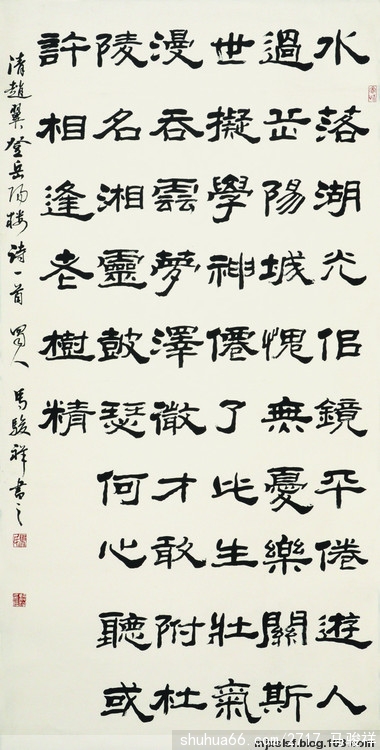 水落湖光佀鏡平倦遊人
過岳陽城愧無憂樂關斯
世擬學神僊了此生壯氣
漫吞雲夢澤微才敢附杜
陵名湘靈鼓瑟何心聽或
許相逢老樹精
清趙翼登岳陽楼詩一首 蜀人 馬駿祥書之
shuhua66.com/2717_马骏祥